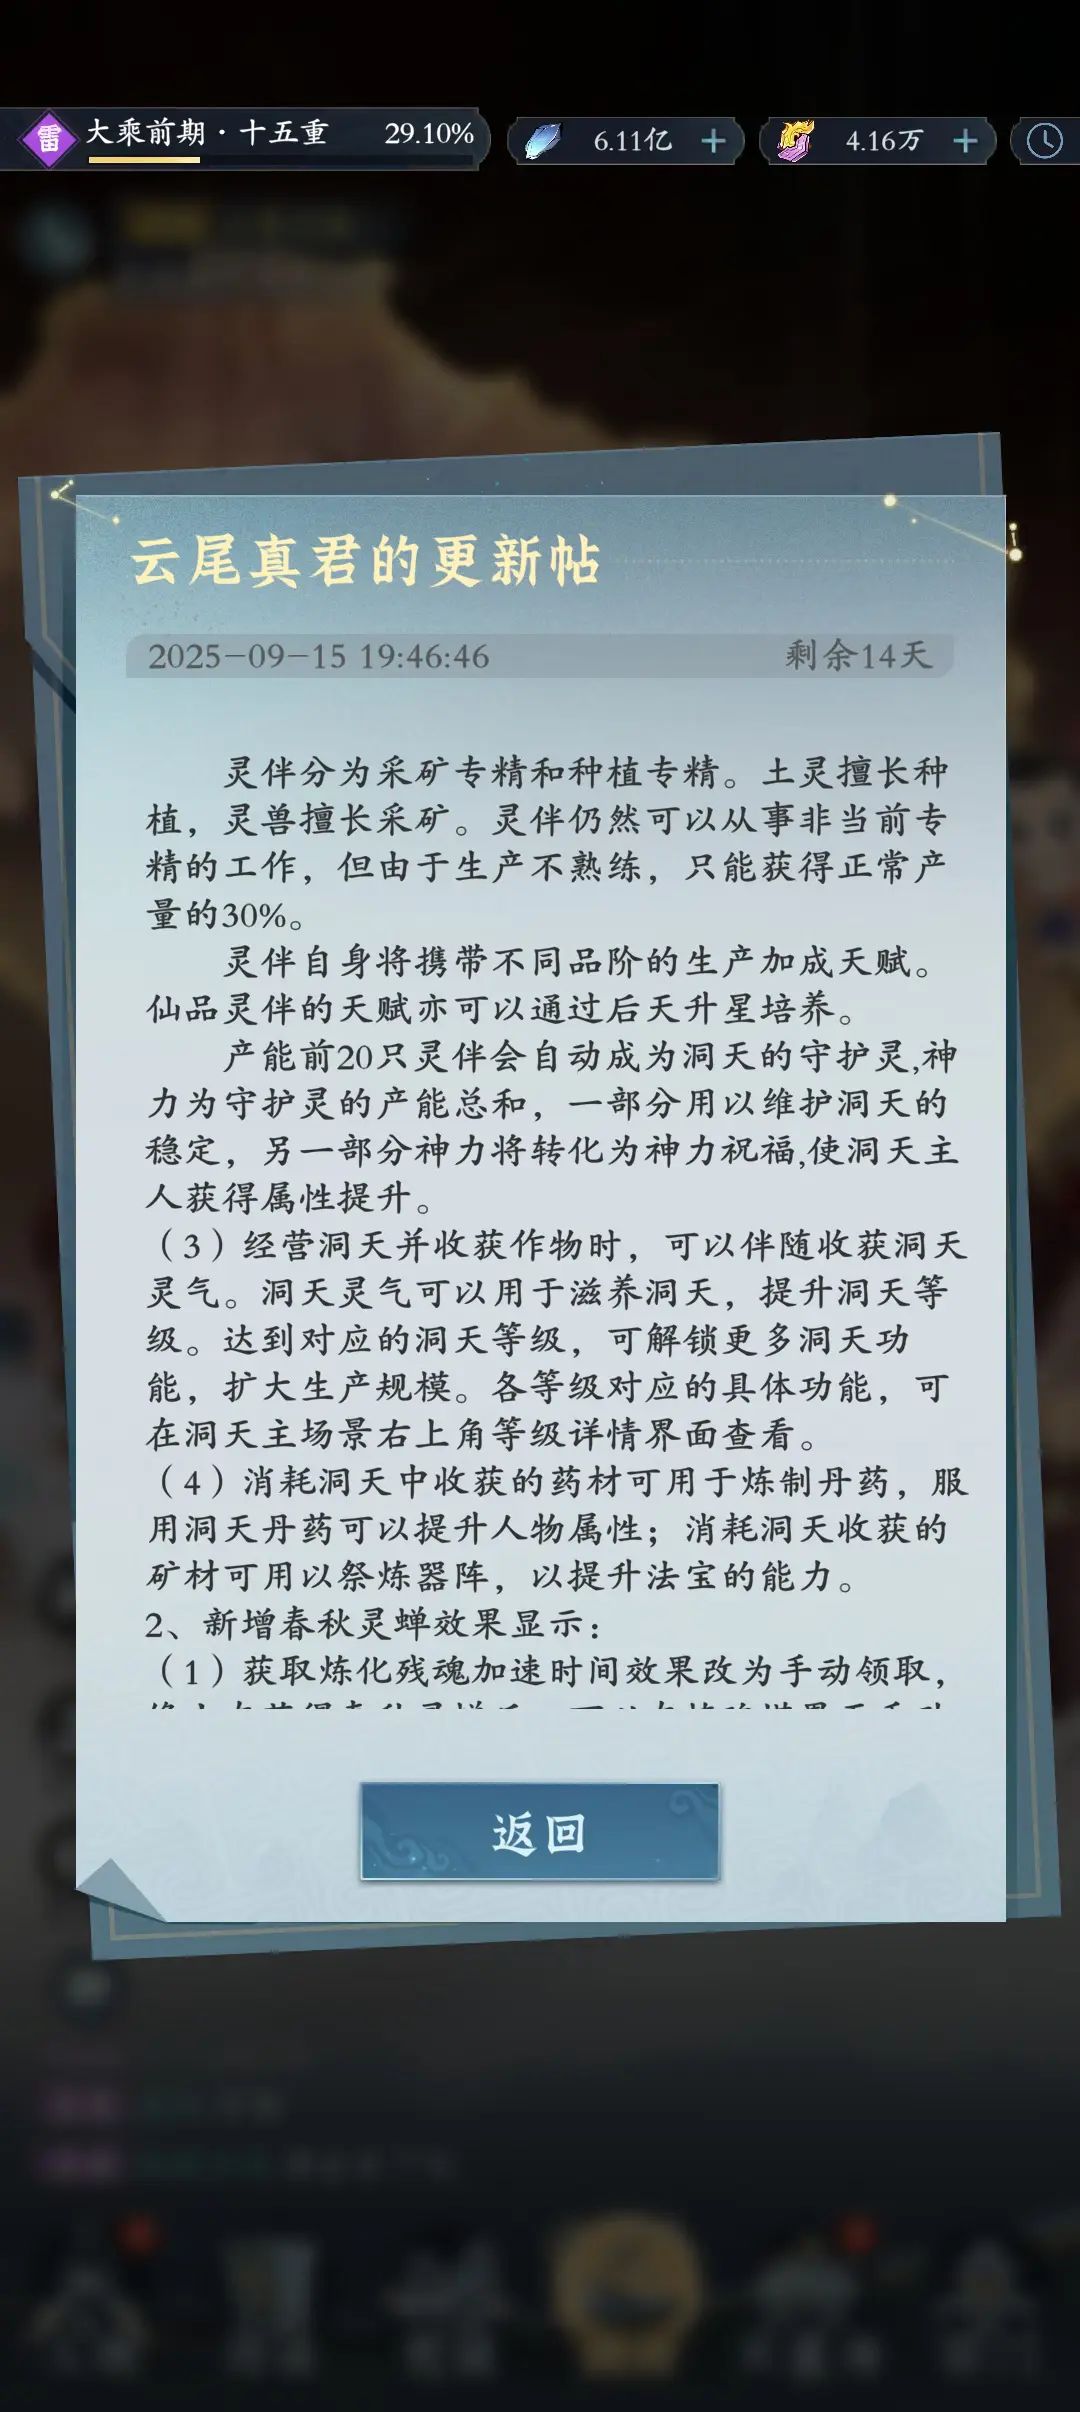 雷 大乘前期·十五重 29.10% 6.11亿 + 4.16万 +
云尾真君的更新帖
2025-09-15 19:46:46 剩余14天
灵伴分为采矿专精和种植专精。土灵擅长种
植，灵兽擅长采矿。灵伴仍然可以从事非当前专
精的工作，但由于生产不熟练，只能获得正常产
量的30%。
灵伴自身将携带不同品阶的生产加成天赋。
仙品灵伴的天赋亦可以通过后天升星培养。
产能前20只灵伴会自动成为洞天的守护灵,神
力为守护灵的产能总和，一部分用以维护洞天的
稳定，另一部分神力将转化为神力祝福,使洞天主
人获得属性提升。
（3）经营洞天并收获作物时，可以伴随收获洞天
灵气。洞天灵气可以用于滋养洞天，提升洞天等
级。达到对应的洞天等级，可解锁更多洞天功
能，扩大生产规模。各等级对应的具体功能，可
在洞天主场景右上角等级详情界面查看。
（4）消耗洞天中收获的药材可用于炼制丹药，服
用洞天丹药可以提升人物属性；消耗洞天收获的
矿材可用以祭炼器阵，以提升法宝的能力。
2、新增春秋灵蝉效果显示：
（1）获取炼化残魂加速时间效果改为手动领取，
返回